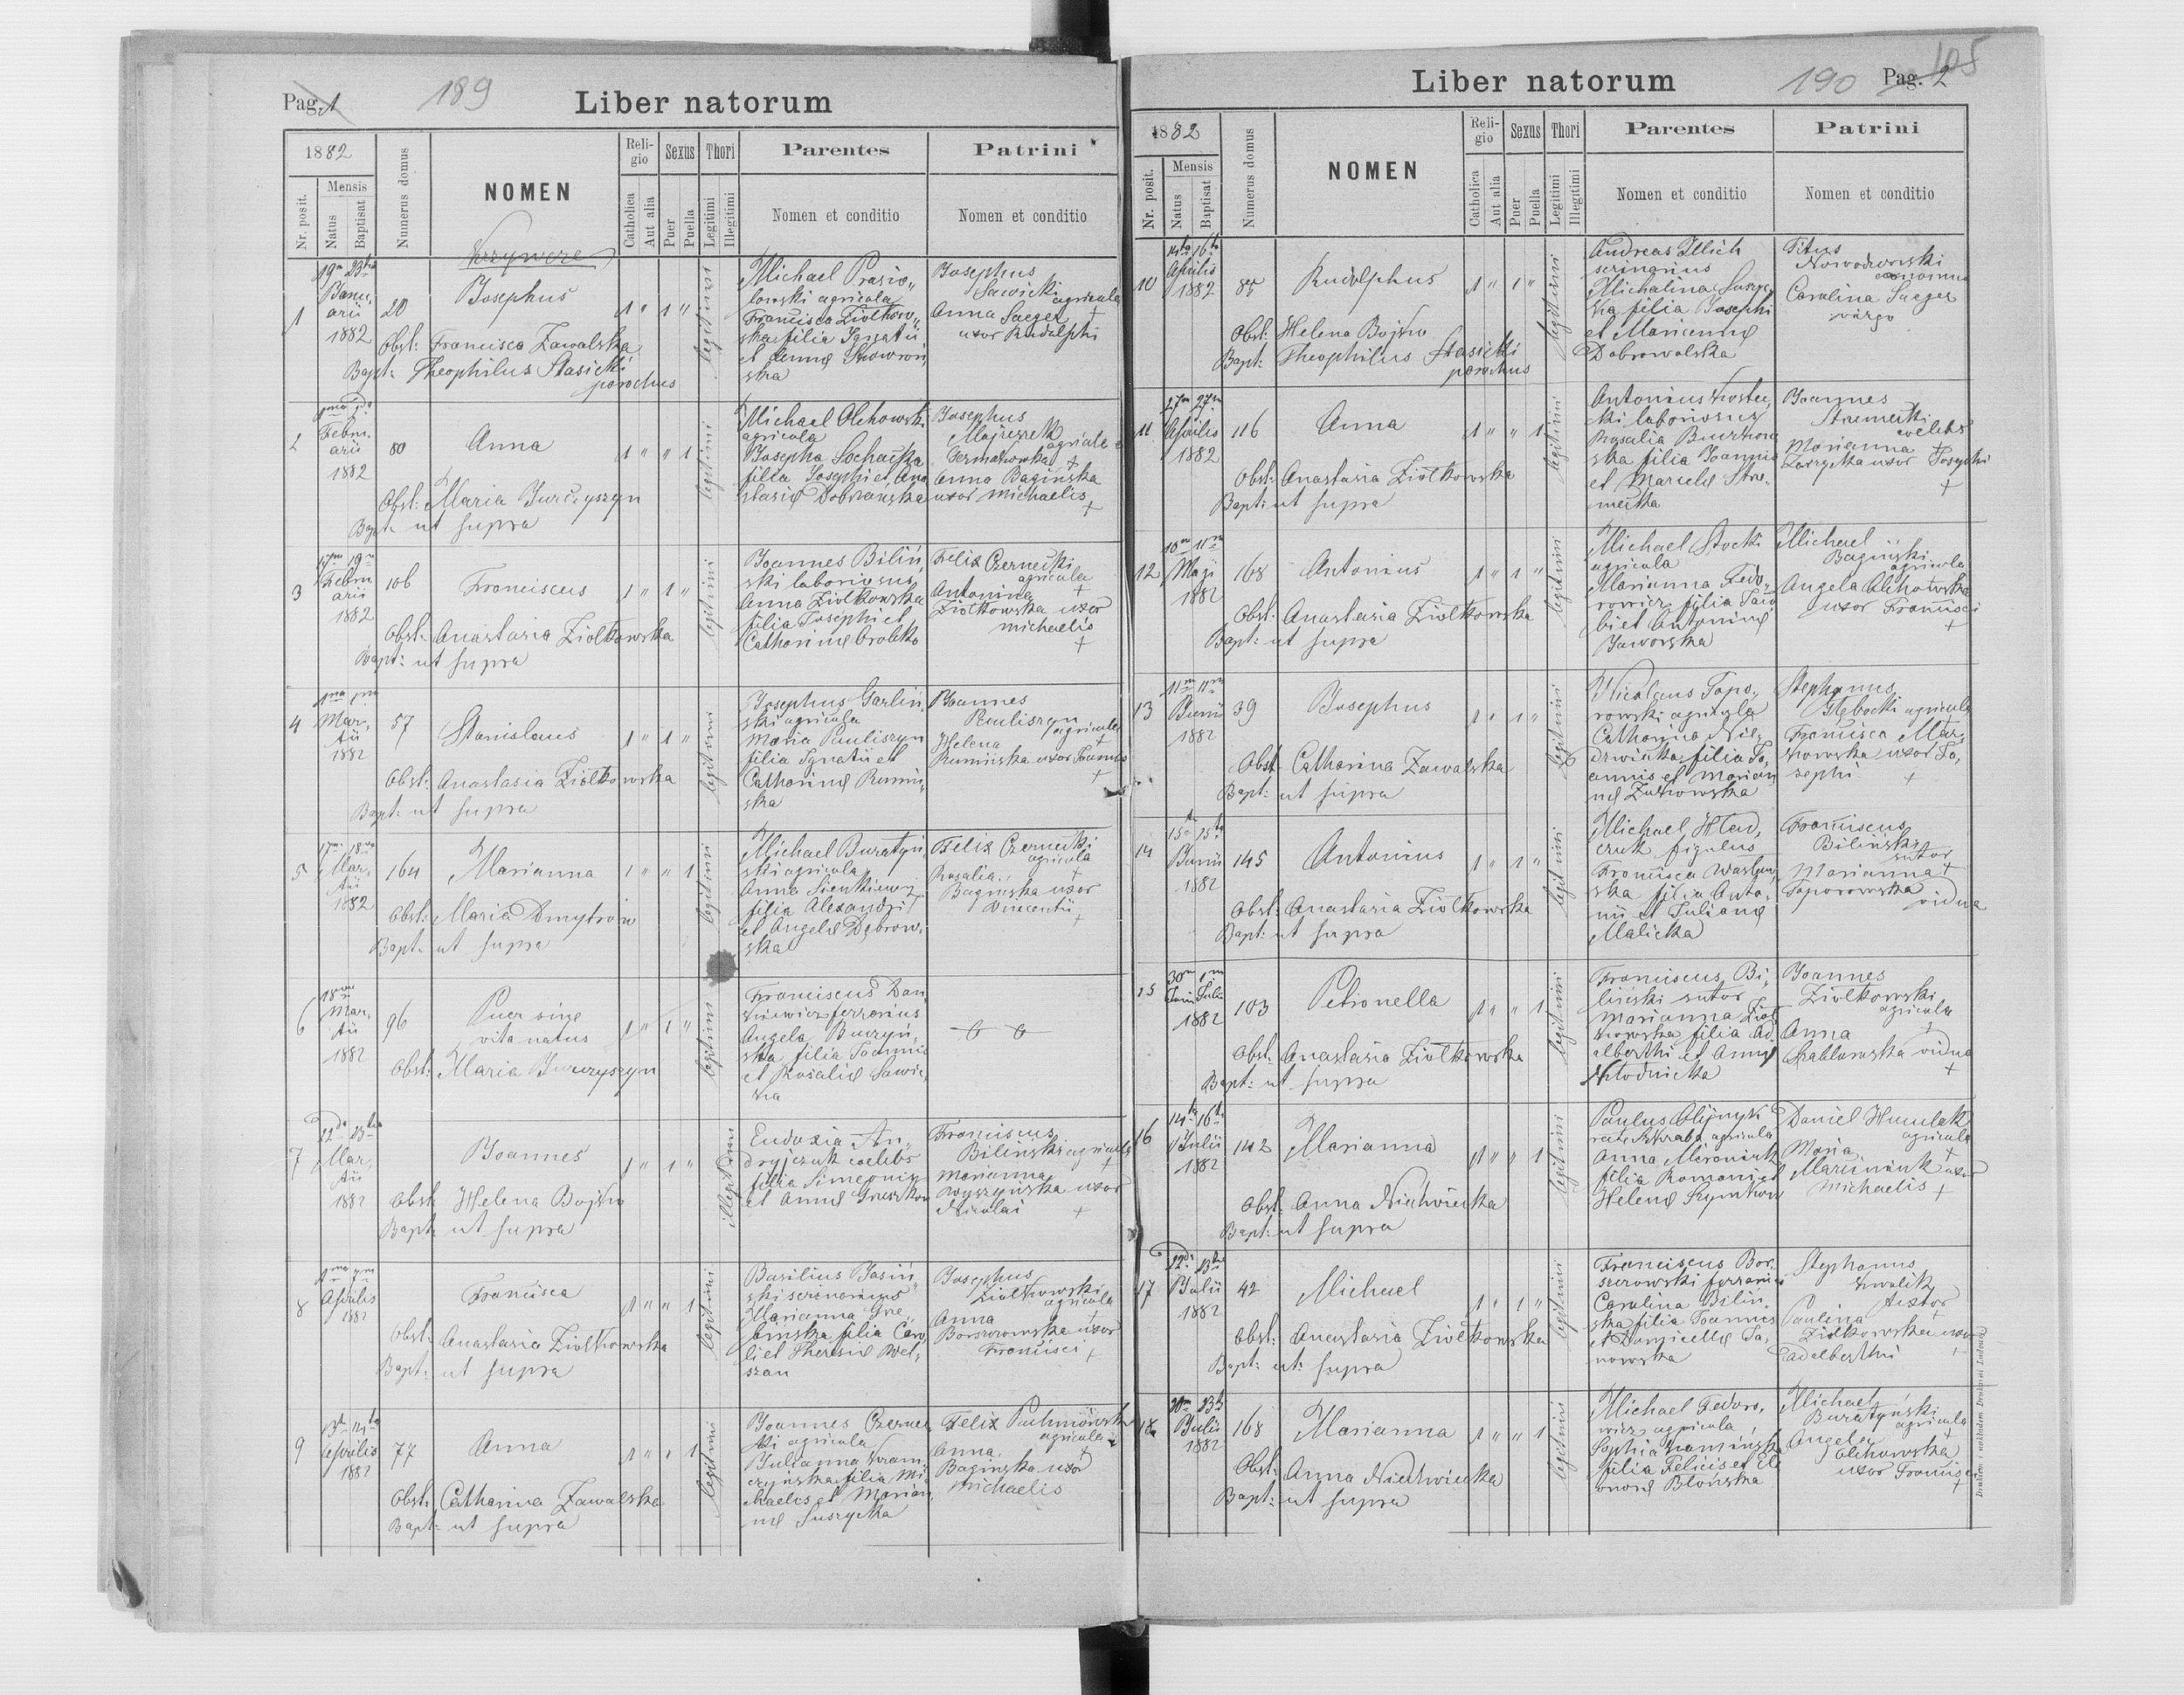 Pag. 1
189
Liber natorum
1882
Nr. posit.
Mensis
Natus
Baptisat
Numerus domus
NOMEN
Religio
Catholica
Aut alia
Sexus
Puer
Puella
Thori
Legitimi
Illegitimi
Parentes
Nomen et conditio
Patrini
Nomen et conditio
1
19a 23tia
Janu,
arii
1882
20
Josephus
1 " 1 "
legitimi
Obst: Francisca Zawalska
Bapt: Theophilus Stasicki
parochus
Michael Prasio,,
lowski agricola
Francisca Ziółkow,,
ska filia Ignatii
et Annae Skowroń
ska
Josephus
Sawicki
agricola
+
Anna Saeger
uxor Rudolphi
2
Febru,
arii
1882
80
Anna
1 " " 1
legitimi
Obst: Maria Jurczyszyn
Bapt: ut supra
Michael Olchowski
agricola
Josepha Sochacka
filia Josephi et Ana
stasiae Dobrzańska
Josephus
Majeszek
agricola
+
Anna Bagińska
uxor Michaelis
+
3
17ma 19a
Febru
arii
1882
106
Franciscus
1 " 1 "
legitimi
Obst: Anastasia Ziółkowska
Bapt: ut supra
Joannes Biliń,
ski laboriosus
Anna Ziołkowska
filia Josephi et
Catharinae
Felix Czernecki
agricola
+
Antonina
Ziołkowska uxor
Michaelis
+
4
Mar,
tii
1882
57
Stanislaus
1 " 1 "
legitimi
Obst: Anastasia Ziółkowska
Bapt: ut supra
Josephus Garliń,
ski agricola
Maria Pauliszyn
filia Ignatii et
Catharinae Rumiń,
ska
Joannes
Pauliszyn
agricola
+
Helena
Rumińska uxor Joannis
+
5
17ma 18va
Mar,
tii
1882
164
Marianna
1 " " 1
legitimi
Obst: Maria Dmytrów
Bapt: ut supra
Michael Buratyń,
ski agricola
Anna Sienkiewicz
filia Alexandri
et Angelae Dąbrow,
ska
Felix Czernecki
agricola
+
Rosalia
Bagińska uxor
Vincentii
+
6
18va
Mar,
tii
1882
96
Puer sine
vita natus
1 " 1 "
legitimi
Obst: Maria Jurczyszyn
Franciscus Dan,
kiewicz ferrarius
Angela Buczyń,
ska filia Joannis
et Rosaliae Sawic,
ka
7
22da 23tia
Mar,
tii
1882
Joannes
1 " 1 "
illegitimi
Obst: Helena Bojko
Bapt: ut supra
Eudoxia An,
dryjczuk coelebs
filia Simeonis
et Annae Gruszkow
Franciscus
Biliński agricola
+
Marianna
Wyszyńska uxor
Nicolai
+
8
Aprilis
1882
Francisca
1 " " 1
legitimi
Obst: Anastasia Ziółkowska
Bapt: ut supra
Basilius Jasiń,
ski
Marianna Gre,
filia Caro,
li et Theresiae
Josephus
Ziółkowski
agricola
+
Anna
Borszczowska uxor
Francisci
+
9
13a 14ta
Aprilis
1882
77
Anna
1 " " 1
legitimi
Obst: Catharina Zawalska
Bapt: ut supra
Joannes Czernec,
ki agricola
Julianna Kram,
czyńska filia Mi
chaelis et Marian,
nae Suszycka
Felix
agricola
+
Anna
Bagińska uxor
Michaelis
Liber natorum
190
Pag. 2
105
1882
Nr. posit.
Mensis
Natus
Baptisat
Numerus domus
NOMEN
Religio
Catholica
Aut alia
Sexus
Puer
Puella
Thori
Legitimi
Illegitimi
Parentes
Nomen et conditio
Patrini
Nomen et conditio
10
14ta 16ta
Aprilis
1882
Rudolphus
1 " 1 "
legitimi
Obst: Helena Bojko
Bapt: Theophilus Stasicki
parochus
Andreas Illich
Michalina Suszyc,
ka filia Josephi
et Mariannae
Dobrowolska
Titus
Nowodworski
Carolina Saeger
virgo
11
27ma 27ma
Aprilis
1882
116
Anna
1 " " 1
legitimi
Obst: Anastasia Ziółkowska
Bapt: ut supra
Antonius
ki laboriosus
Rosalia
ska filia Joannis
et Marcelae Stre,
mecka
Joannes
Stremecki
coelebs
+
Marianna
Zarzycka uxor Josephi
+
12
10ma 11ma
Maji
1882
168
Antonius
1 " 1 "
legitimi
Obst: Anastasia Ziółkowska
Bapt: ut supra
Michael Stocki
agricola
Marianna Fedo,
rowicz filia Jaco
bi et Antoninae
Jaworska
Michael
Bagiński
agricola
Angela Olchowska
uxor Francisci
+
13
11ma 11ma
Junii
1882
39
Josephus
1 " 1 "
legitimi
Obst: Catharina Zawalska
Bapt: ut supra
Nicolaus Topo,
rowski agricola
Catharina Nie,
dzwiecka filia Jo,
annis et Marian
nae Żukowska
Stephanus
Głębocki agricola
+
Francisca Mar,
kowska uxor Jo,
sephi +
14
15ta 15ta
Junii
1882
145
Antonius
1 " 1 "
legitimi
Obst: Anastasia Ziółkowska
Bapt: ut supra
Michael Hlad,
czuk figulus
Francisca
ska filia Anto,
nii et Julianae
Malicka
Franciscus
Biliński
sutor
+
Marianna
Toporowska
vidua
15
30ma 1ma
Junii Julii
1882
103
Petronella
1 " " 1
legitimi
Obst: Anastasia Ziółkowska
Bapt: ut supra
Franciscus Bi,
liński sutor
Marianna Ziół
kowska filia Ad,
alberthi et Annae
Kłodnicka
Joannes
Ziółkowski
agricola
+
Anna
vidua
+
16
14ta 16ta
Julii
1882
142
Marianna
1 " " 1
legitimi
Obst: Anna Niedzwiecka
Bapt: ut supra
Paulus Olijnyk
recte Szkraba agricola
Anna Mironiuk
filia Romani et
Helenae Szymkow
Daniel Huculak
agricola
+
Maria
Marciniuk uxor
Michaelis +
17
22da 23tia
Julii
1882
42
Michael
1 " 1 "
legitimi
Obst: Anastasia Ziółkowska
Bapt: ut supra
Franciscus Bor,
szczowski ferrarius
Carolina Biliń,
ska filia Joannis
et Domicellae Ja,
nowska
Stephanus
Kwolik
+
Paulina
Ziółkowska uxor
Adalberthi +
18
23tia
Julii
1882
168
Marianna
1 " " 1
legitimi
Obst: Anna Niedzwiecka
Bapt: ut supra
Michael Fedoro,
wicz agricola
Sophia Kamińska
filia Felicis et Ele
onorae Błońska
Michael
Buratyński
agricola
+
Angela
Olchowska
uxor Francisci
+